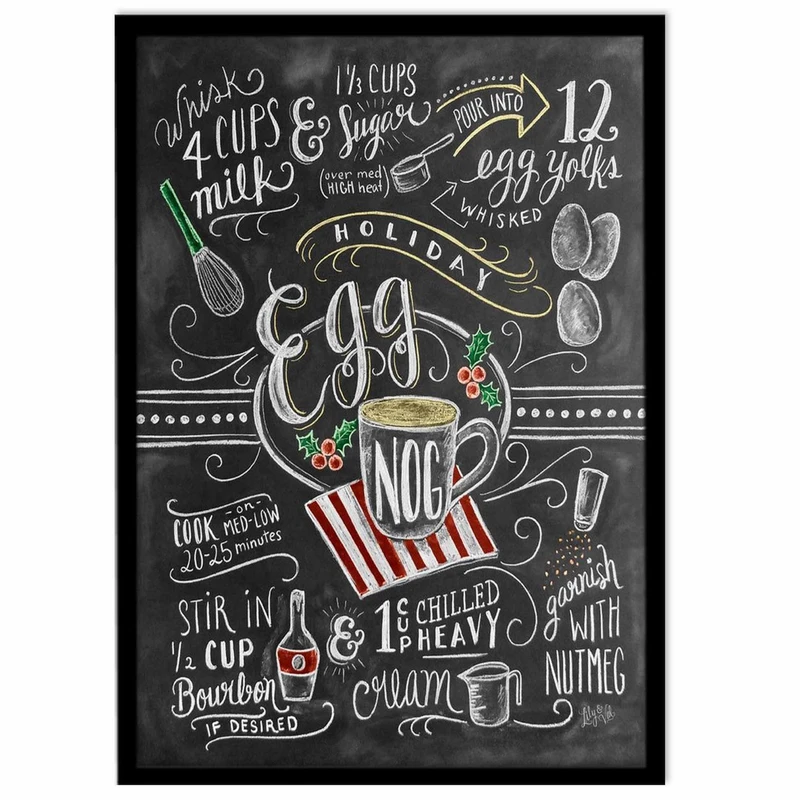 Whisk
4 CUPS
milk
& 1 1/3 CUPS
Sugar
(over med
HIGH heat)
POUR INTO
12
egg yolks
WHISKED
HOLIDAY
Egg
NOG
COOK -on-
MED-LOW
20-25 minutes
STIR IN
1/2 CUP
Bourbon
IF DESIRED
& 1 CUP CHILLED
HEAVY
cream
garnish
WITH
NUTMEG
Lily & Val